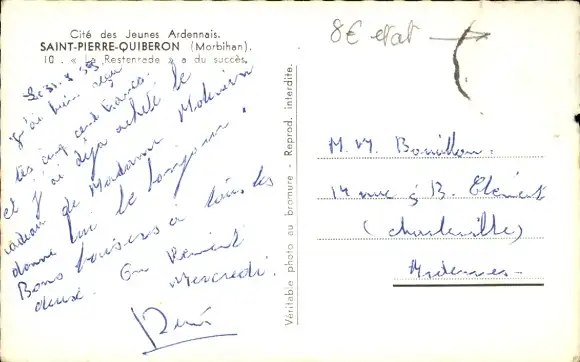 Cité des Jeunes Ardennais.
SAINT-PIERRE-QUIBERON (Morbihan).
10. - « Le Restenrade » a du succès.
J'ai bien reçu
tes cinq cent francs.
et j'ai déja acheté le
cadeau de Madame
donne lui le bonjour.
Bons baisers à tous les
deux. On revient
Mercredi.
Véritable photo au bromure - Reprod. interdite.
8€ etat
M. M. Bouillon.
14 rue J. B. Clément
(Charleville)
Ardennes-